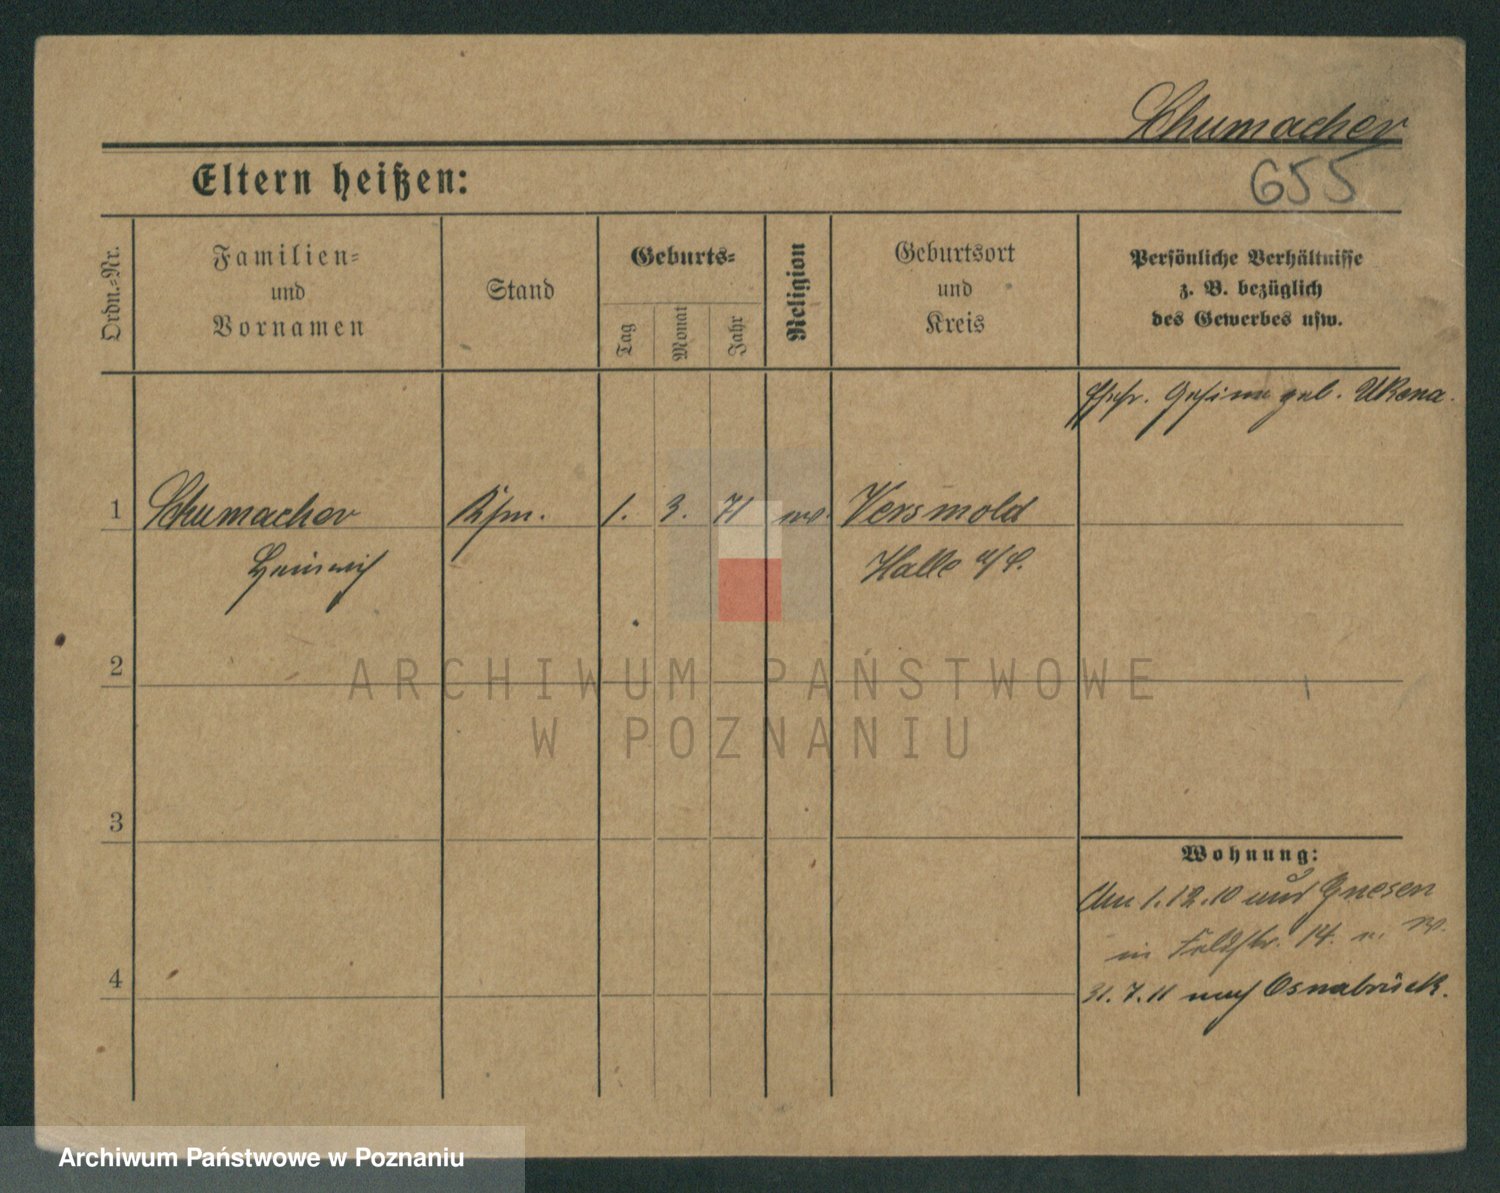 Schumacher
655
Eltern heißen:
Ordn.-Nr.
Familien-
und
Vornamen
Stand
Geburts-
Tag
Monat
Jahr
Religion
Geburtsort
und
Kreis
Persönliche Verhältnisse
z. B. bezüglich
des Gewerbes usw.
Ehefr. Gesine geb. Ukena.
1 Schumacher Kfm. 1. 3. 71 ev. Versmold
Heinrich Halle
2
ARCHIWUM PAŃSTWOWE
W POZNANIU
3
Wohnung:
Am 1.12.10 aus Gnesen
in Feldstr. 14.
4
31.7.11 nach Osnabrück.
Archiwum Państwowe w Poznaniu